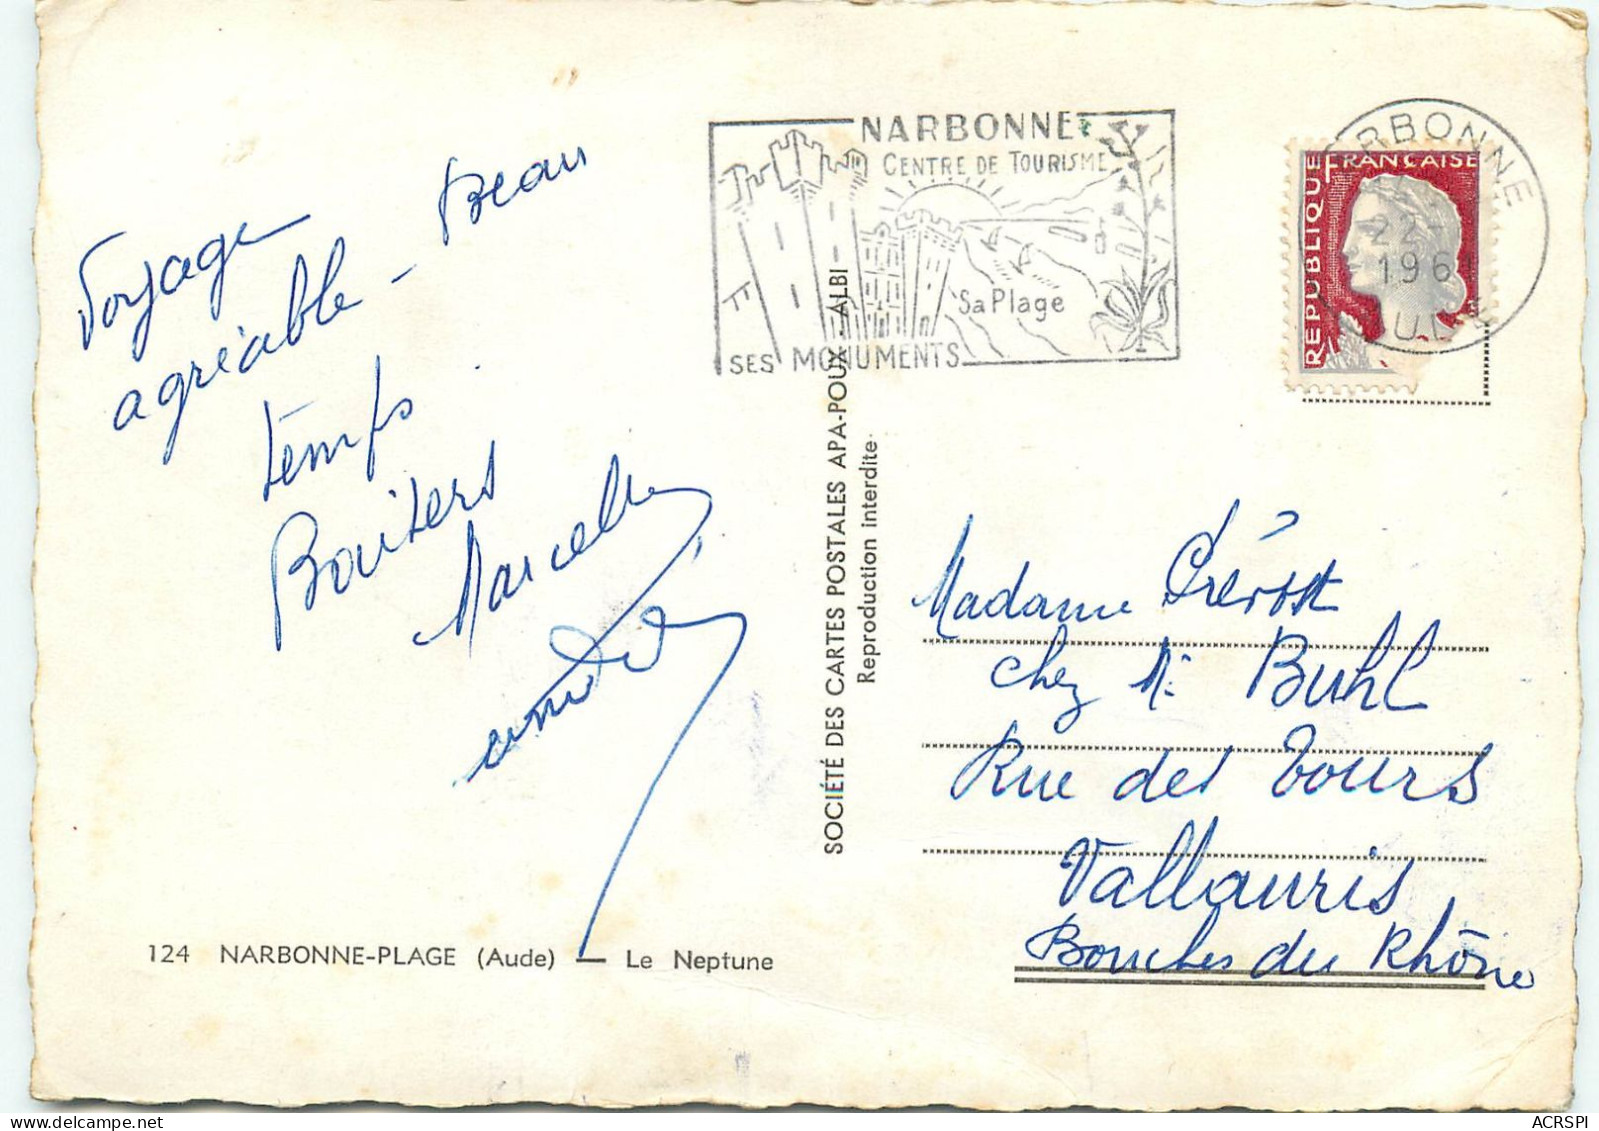 Voyage
agréable - Beau
temps
Baisers
Marcelle
124 NARBONNE-PLAGE (Aude) — Le Neptune
SOCIÉTÉ DES CARTES POSTALES APA-POUX - ALBI
Reproduction interdite
NARBONNE
CENTRE DE TOURISME
Sa Plage
SES MONUMENTS
RÉPUBLIQUE FRANÇAISE
NARBONNE
22-
196
AUDE
Madame Prévost
chez M. Buhl
Rue des Tours
Vallauris
Bouches du Rhône
ACRSPI
delcampe.net